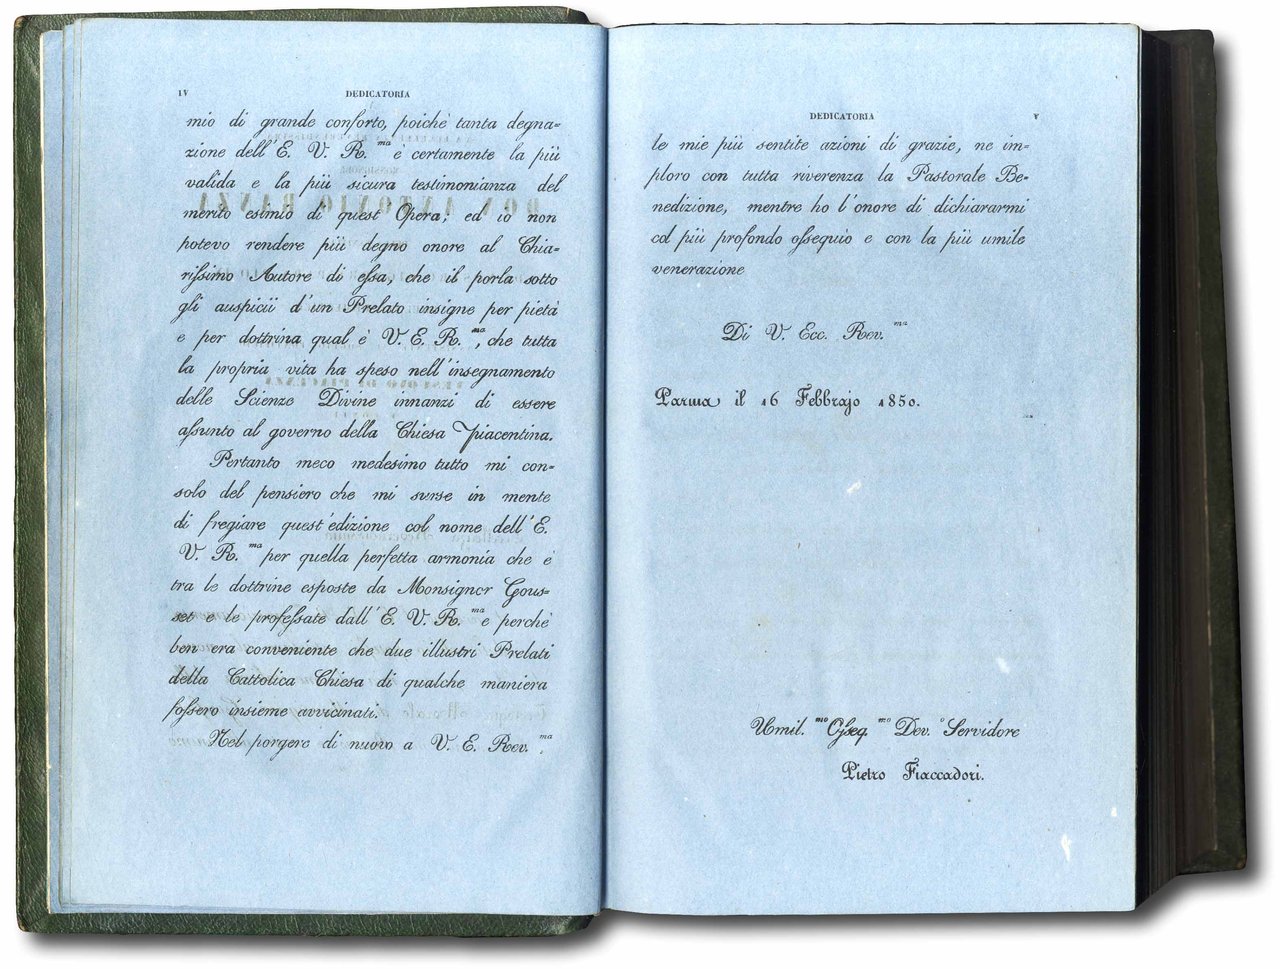 IV DEDICATORIA
mio di grande conforto, poichè tanta degna=
zione dell'E. V. R.ma è certamente la più
valida e la più sicura testimonianza del
merito esimio di quest'Opera; ed io non
potevo rendere più degno onore al Chia=
rissimo Autore di essa, che il porla sotto
gli auspicii d'un Prelato insigne per pietà
e per dottrina qual è V. E. R.ma, che tutta
la propria vita ha speso nell'insegnamento
delle Scienze Divine innanzi di essere
assunto al governo della Chiesa Piacentina.
Pertanto meco medesimo tutto mi con=
solo del pensiero che mi surse in mente
di fregiare quest'edizione col nome dell'E.
V. R.ma per quella perfetta armonia che è
tra le dottrine esposte da Monsignor Gous=
set e le professate dall'E. V. R.ma e perchè
ben era conveniente che due illustri Prelati
della Cattolica Chiesa di qualche maniera
fossero insieme avvicinati.
Nel porgere di nuovo a V. E. Rev.ma
DEDICATORIA V
le mie più sentite azioni di grazie, ne im=
ploro con tutta riverenza la Pastorale Be=
nedizione, mentre ho l'onore di dichiararmi
col più profondo ossequio e con la più umile
venerazione
Di V. Ecc. Rev.ma
Parma il 16 Febbrajo 1850.
Umil.mo Osseq.mo Dev.o Servidore
Pietro Fiaccadori.